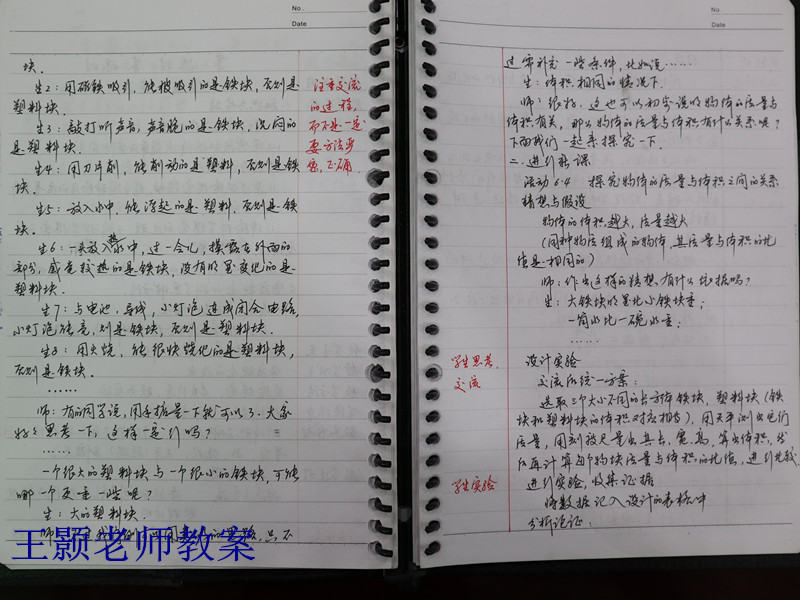 No.
Date
块.
生2: 用磁铁吸引, 能被吸引的是铁块, 否则是
塑料块.
生3: 敲打听声音, 声音脆的是铁块, 沉闷的
是塑料块.
生4: 用刀片削, 能削动的是塑料, 否则是铁
块.
生5: 放入水中, 能浮起的是塑料, 否则是铁
块.
生6: 一头放入热水中, 过一会儿, 摸露在外面的
部分, 感觉较热的是铁块, 没有明显变化的是
塑料块.
生7: 与电池、导线, 小灯泡连成闭合电路,
小灯泡能亮, 则是铁块, 否则是塑料块.
生8: 用火烧, 能很快熔化的是塑料块,
否则是铁块.
……
师: 有的同学说, 用手掂量一下就可以了. 大家
好好思考一下, 这样一定行吗?
……
一个很大的塑料块与一个很小的铁块, 可能
哪一个更重一些呢?
生: 大的塑料块.
注重交流
的过程,
而不是一定
要方法
正确
王颢老师教案
No.
Date
还需补充一些条件, 比如说……
生: 体积相同的情况下.
师: 很好. 这也可以初步说明物体的质量与
体积有关, 那么物体的质量与体积有什么关系呢?
下面我们一起来探究一下.
二、进行新课
活动6.4 探究物体的质量与体积之间的关系
猜想与假设
物体的体积越大, 质量越大
(同种物质组成的物体, 其质量与体积的比
值是相同的)
师: 作出这样的猜想有什么依据吗?
生: 大铁块明显比小铁块重;
一桶水比一碗水重;
……
学生思考,
交流
设计实验
交流后统一方案:
选取三个大小不同的长方体铁块, 塑料块(铁
块和塑料块的体积对应相等), 用天平测出它们
质量, 用刻度尺量出其长、宽、高, 算出体积, 然
后再计算每个物块质量与体积的比值, 进行比较.
学生实验
进行实验, 收集证据
将数据记入设计的表格中
分析论证: